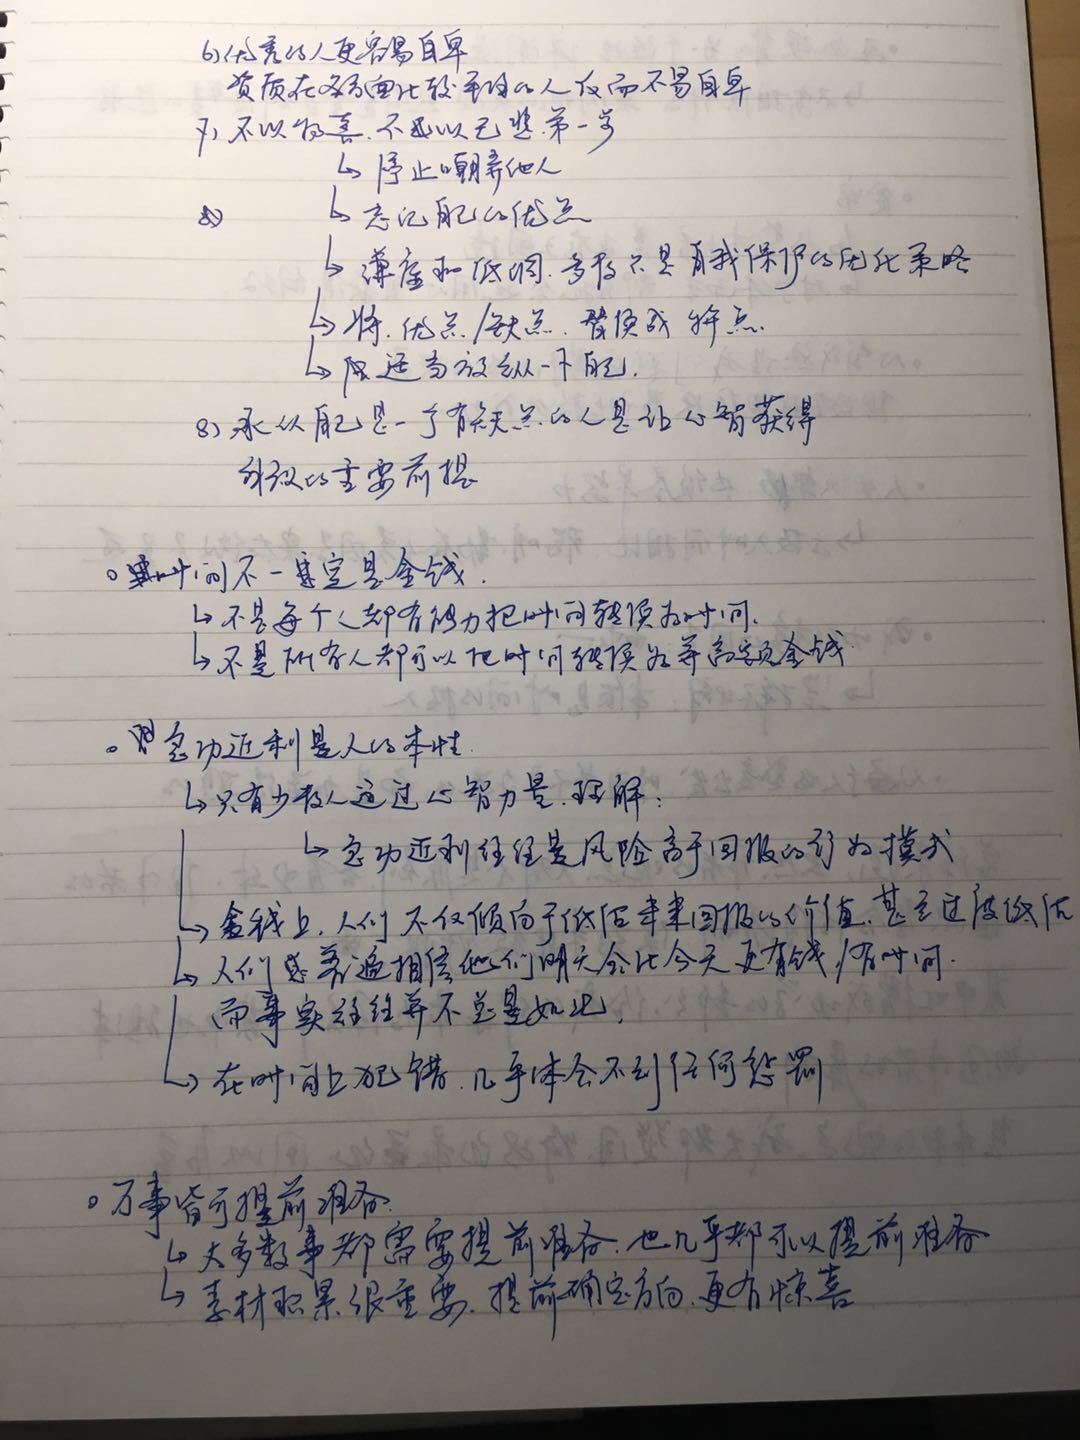 6) 优秀的人更容易自卑
资质在各方面比较平均的人反而不易自卑
7) 不以物喜、不以己悲、第一步
↳ 停止嘲弄他人
↳ 忘记自己的优点
↳ 谦虚和低调、多数只是自我保护的优化策略
↳ 将、优点/缺点、替换成 特点
↳ 适当放纵一下自己.
8) 承认自己是一个有缺点的人是让心智获得
升级的重要前提
。时间不一定是金钱.
↳ 不是每个人都有能力把时间转换为时间.
↳ 不是所有人都可以把时间转换为等高额金钱
。急功近利是人的本性.
↳ 只有少数人通过心智力量、理解:
↳ 急功近利往往是风险高于回报的行为模式
↳ 金钱上、人们不仅倾向于低估未来回报的价值、甚至过度低估
↳ 人们总普遍相信他们明天会比今天更有钱/有时间.
而事实往往并不总是如此,
↳ 在时间上犯错、几乎体会不到任何惩罚
。万事皆可提前准备.
↳ 大多数事都需要提前准备、也几乎都可以提前准备
↳ 素材积累很重要、提前确定方向、更有惊喜